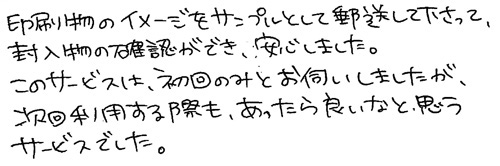 印刷物のイメージをサンプルとして郵送して下さって、
封入物の確認ができ、安心しました。
このサービスは、初回のみとお伺いしましたが、
次回利用する際も、あったら良いなと思う
サービスでした。